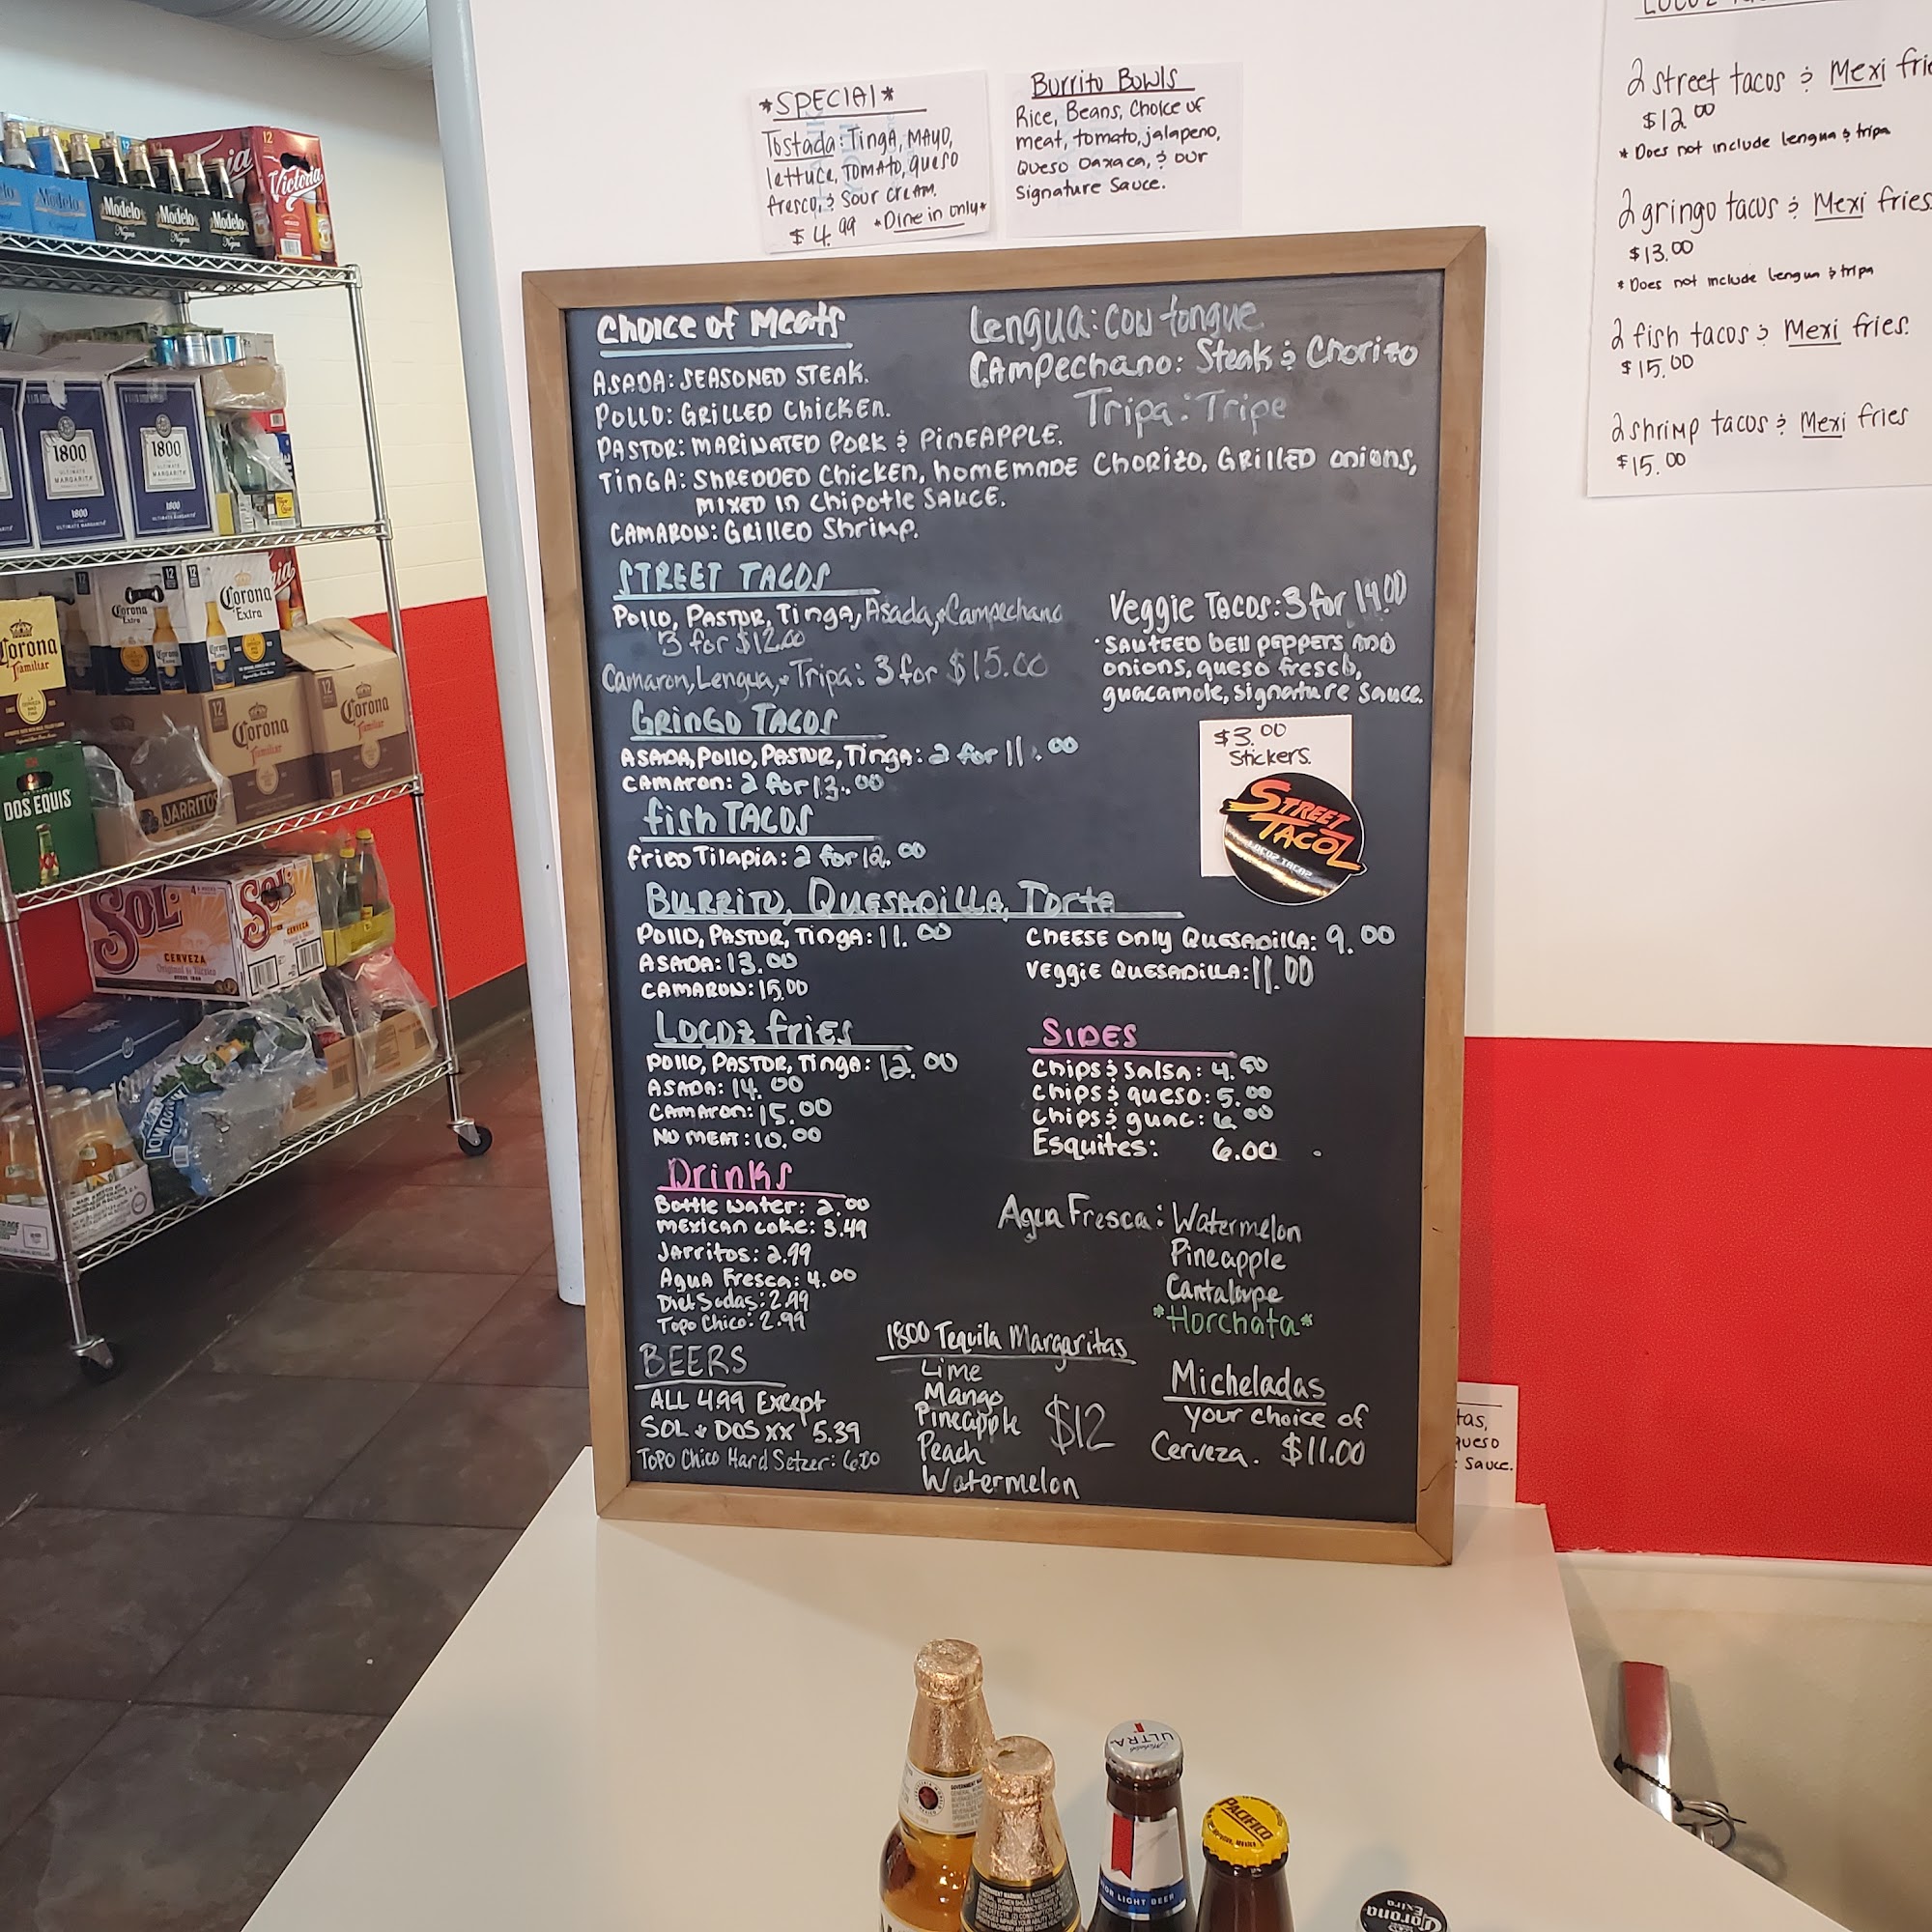 *SPECIAl*
Tostada: TingA, MAYO,
lettuce, TOMATO, queso
fresco, & Sour cream.
$4.99 *Dine in only*
Burrito Bowls
Rice, Beans, Choice of
meat, tomato, jalapeno,
Queso Oaxaca, & our
Signature Sauce.
2 street tacos & Mexi
$12.00
* Does not include lengua & tripa
2 gringo tacos & Mexi fries
$13.00
* Does not include lengua & tripa
2 fish tacos & Mexi fries.
$15.00
2 shrimp tacos & Mexi fries
$15.00
Choice of Meats
ASADA: SEASONED STEAK.
POLLO: GRILLED ChickEn.
PASTOR: MARINATED PORK & PINEAPPLE.
TINGA: ShREDDED Chicken, homEmADE Chorizo, GRillED onions,
MIXED In Chipotle SAUCE.
CAMARON: GRILLED Shrimp.
Lengua: Cow tongue
CAmpechano: Steak & Chorizo
Tripa: Tripe
STREET TACOS
Pollo, PASTOR, Tinga, Asada, & Campechano
3 for $12.00
Camaron, Lengua, & Tripa: 3 for $15.00
Veggie TACOS: 3 for 14.00
• SAUTEED bell peppers AND
onions, queso fresco,
guacamole, signature sauce.
GRINGO TACOS
ASADA, Pollo, PASTOR, Tinga: 2 for 11.00
CAMARon: 2 for 13.00
$3.00
Stickers.
STREET
TACOZ
LOCOZ TACOZ
fish TACOS
frieD Tilapia: 2 for 12.00
BURRITO, QUESADILLA, Torta
Pollo, PASTOR, Tinga: 11.00
ASADA: 13.00
CAMARON: 15.00
CHEESE only QUESADillA: 9.00
VEggiE QUESADILLA: 11.00
LOCOZ friES
Pollo, PASTOR, Tinga: 12.00
ASADA: 14.00
CAMARon: 15.00
NO MEAT: 10.00
SIDES
Chips & salsa: 4.50
Chips & queso: 5.00
Chips & guac: 6.00
Esquites: 6.00
Drinks
Bottle water: 2.00
mexican coke: 3.49
Jarritos: 2.99
AguA Fresca: 4.00
Diet Sodas: 2.49
Topo Chico: 2.99
Agua Fresca: Watermelon
Pineapple
Cantaloupe
*Horchata*
BEERS
ALL 4.99 Except
SOL & DOS XX 5.39
Topo Chico Hard Setzer: 6.00
1800 Tequila Margaritas
Lime
Mango
Pineapple
Peach
Watermelon
$12
Micheladas
your choice of
Cerveza. $11.00
tas,
queso
Sauce.
Modelo
Modelo
Negra
Modelo
Negra
Modelo
Negra
12
Victoria
1800
ULTIMATE
MARGARITA
1800
ULTIMATE MARGARITA
1800
ULTIMATE
MARGARITA
1800
ULTIMATE MARGARITA
12
12
Corona
Extra
Corona
Extra
Corona
Familiar
12
Corona
Familiar
12
Corona
Familiar
DOS EQUIS
XX
JARRITOS
SOL
CERVEZA
SOL
CERVEZA
Michelob
ULTRA
LIGHT BEER
PACIFICO
Corona
Extra